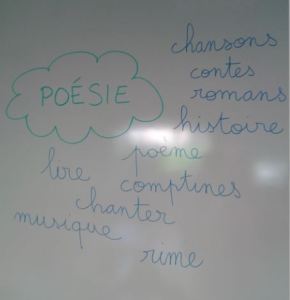 chansons
contes
romans
histoire
POÉSIE
poème
lire
comptines
chanter
musique
rime